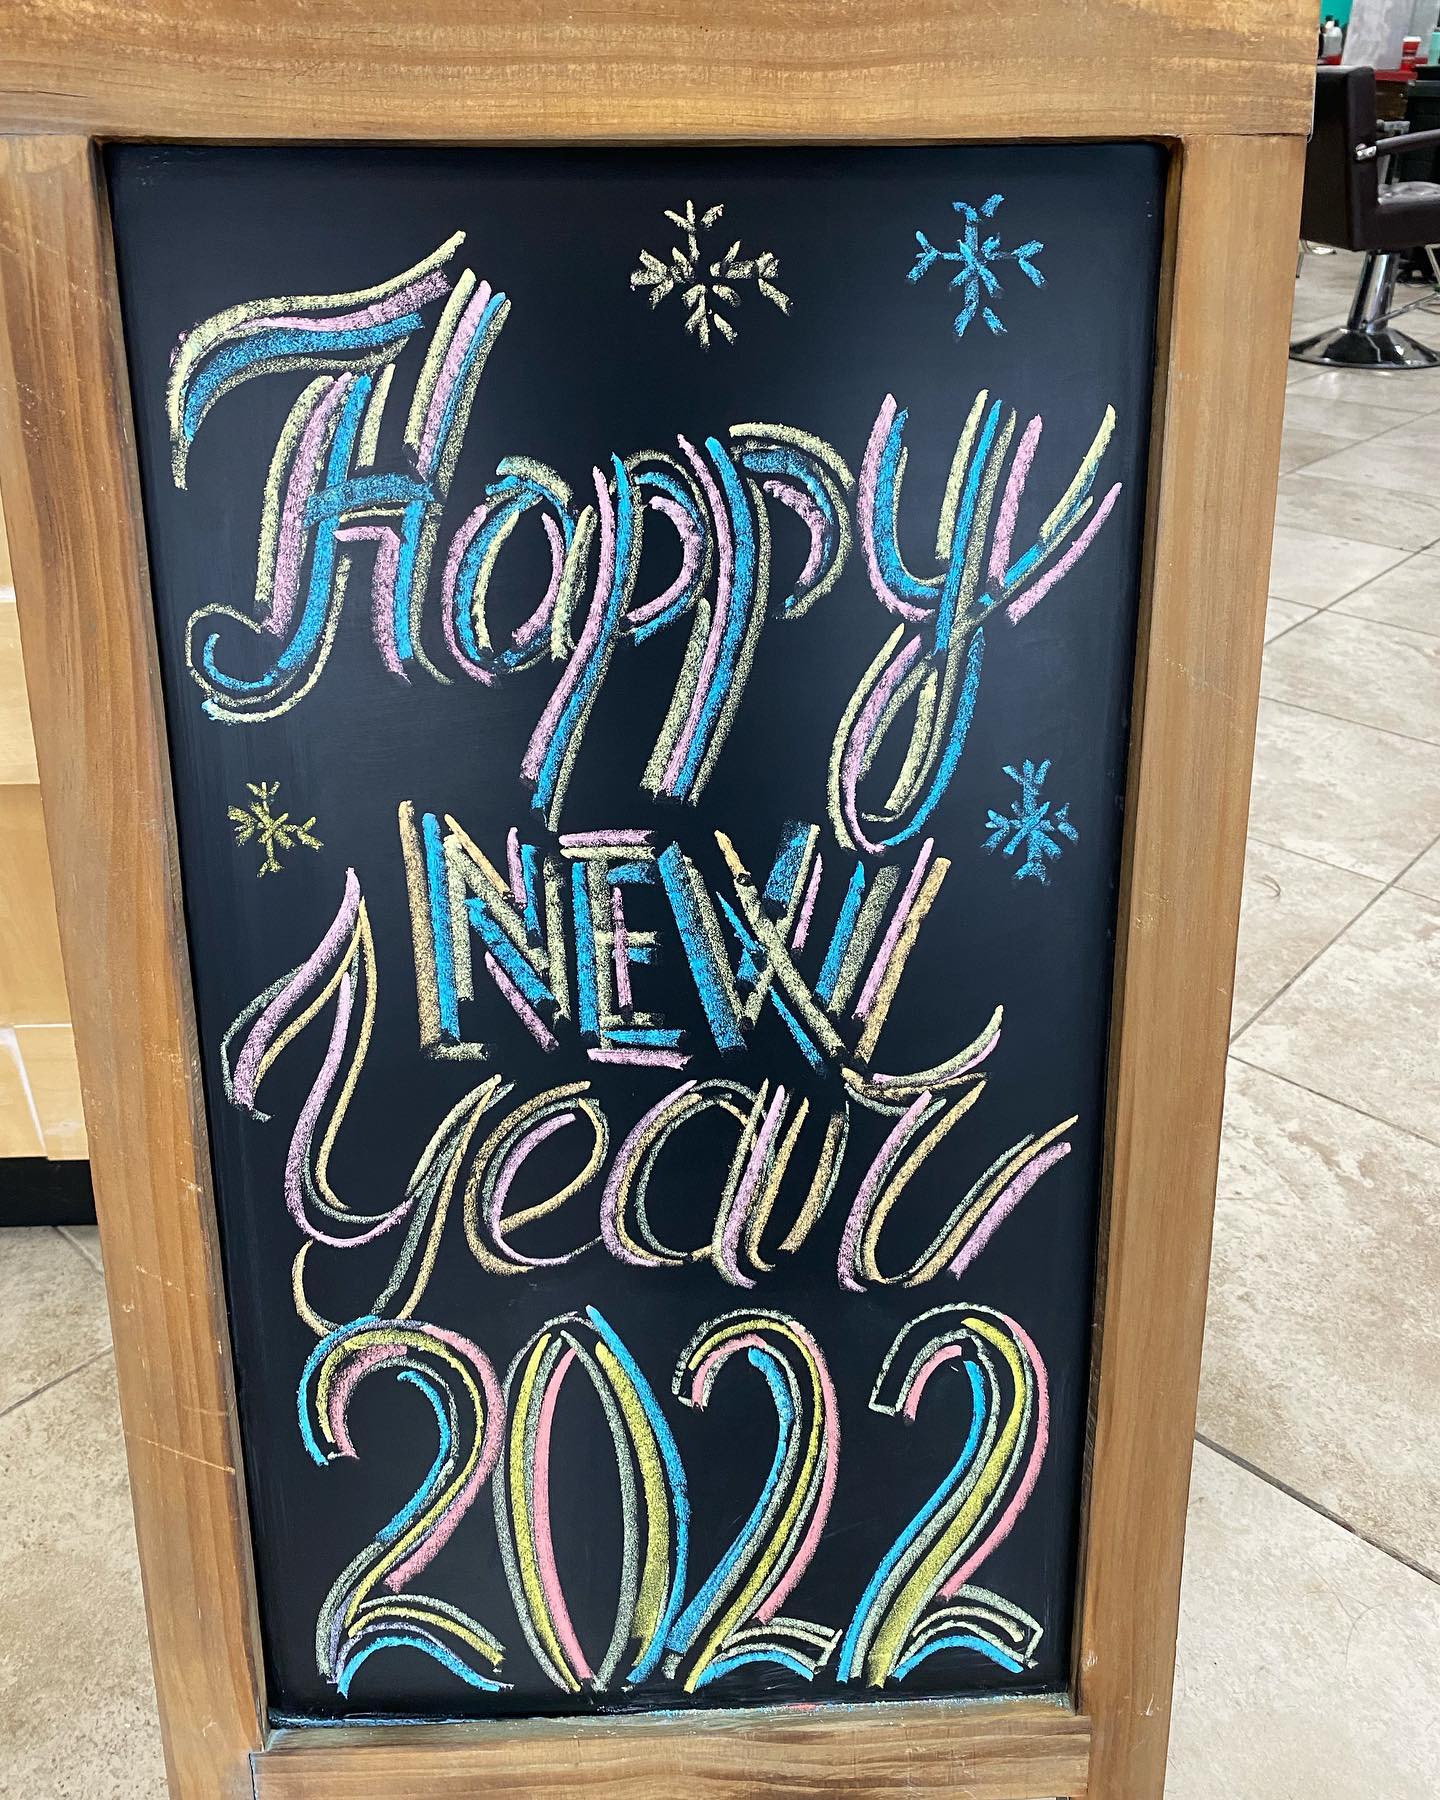 Happy
NEW
Year
2022